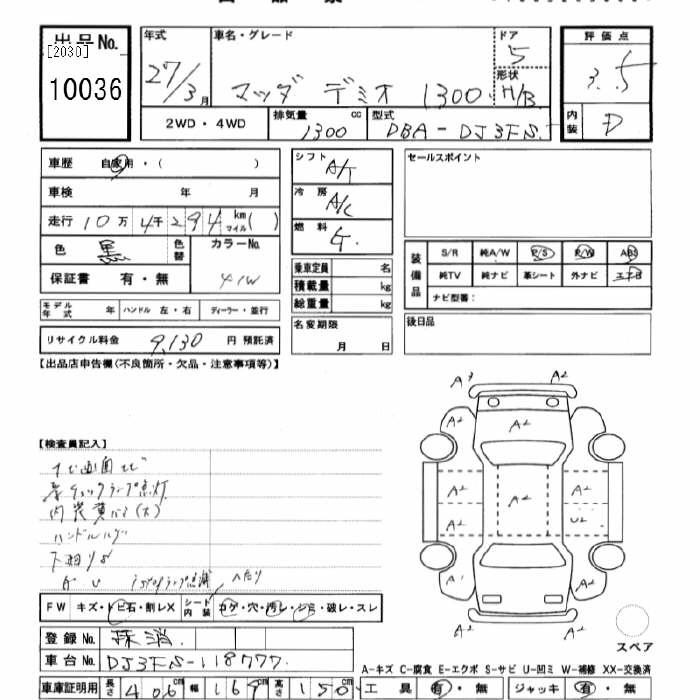 出品No.
[2030]
10036
年式
27/3月
車名・グレード
マツダ デミオ 1300
ドア
5
形状
H/B
評価点
3.5
内装
D
2WD・4WD
排気量 cc
1300
型式
DBA-DJ3FS
車歴 自家用・( )
車検 年 月
走行 10万 4千294 km マイル( )
色 黒 色替
カラーNo.
41W
保証書 有・無
モデル年式 年 ハンドル 左・右 ディーラー・並行
リサイクル料金 9,130 円 預託済
シフト A/T
冷房 A/C
燃料 G.
乗車定員 名
積載量 kg
総重量 kg
名変期限
月 日
セールスポイント
装備品
S/R 純A/W P/S P/W ABS
純TV 純ナビ 革シート 外ナビ エアB
ナビ型番:
後日品
【出品店申告欄(不良箇所・欠品・注意事項等)】
【検査員記入】
ハンドル
下廻りS
A3 A2
A2 A2 A2
A2 A2 A2
A2 U2
A1 A2
A2 A2
スペア
FW キズ・トビ石・割レX シート内装 コゲ・穴・汚レ・シミ・破レ・スレ
登録No. 抹消
車台No. DJ3FS-118777
車庫証明用 長さ 406cm 幅 169cm 高さ 150cm
A-キズ C-腐食 E-エクボ S-サビ U-凹ミ W-補修 XX-交換済
工具 有・無 ジャッキ 有・無